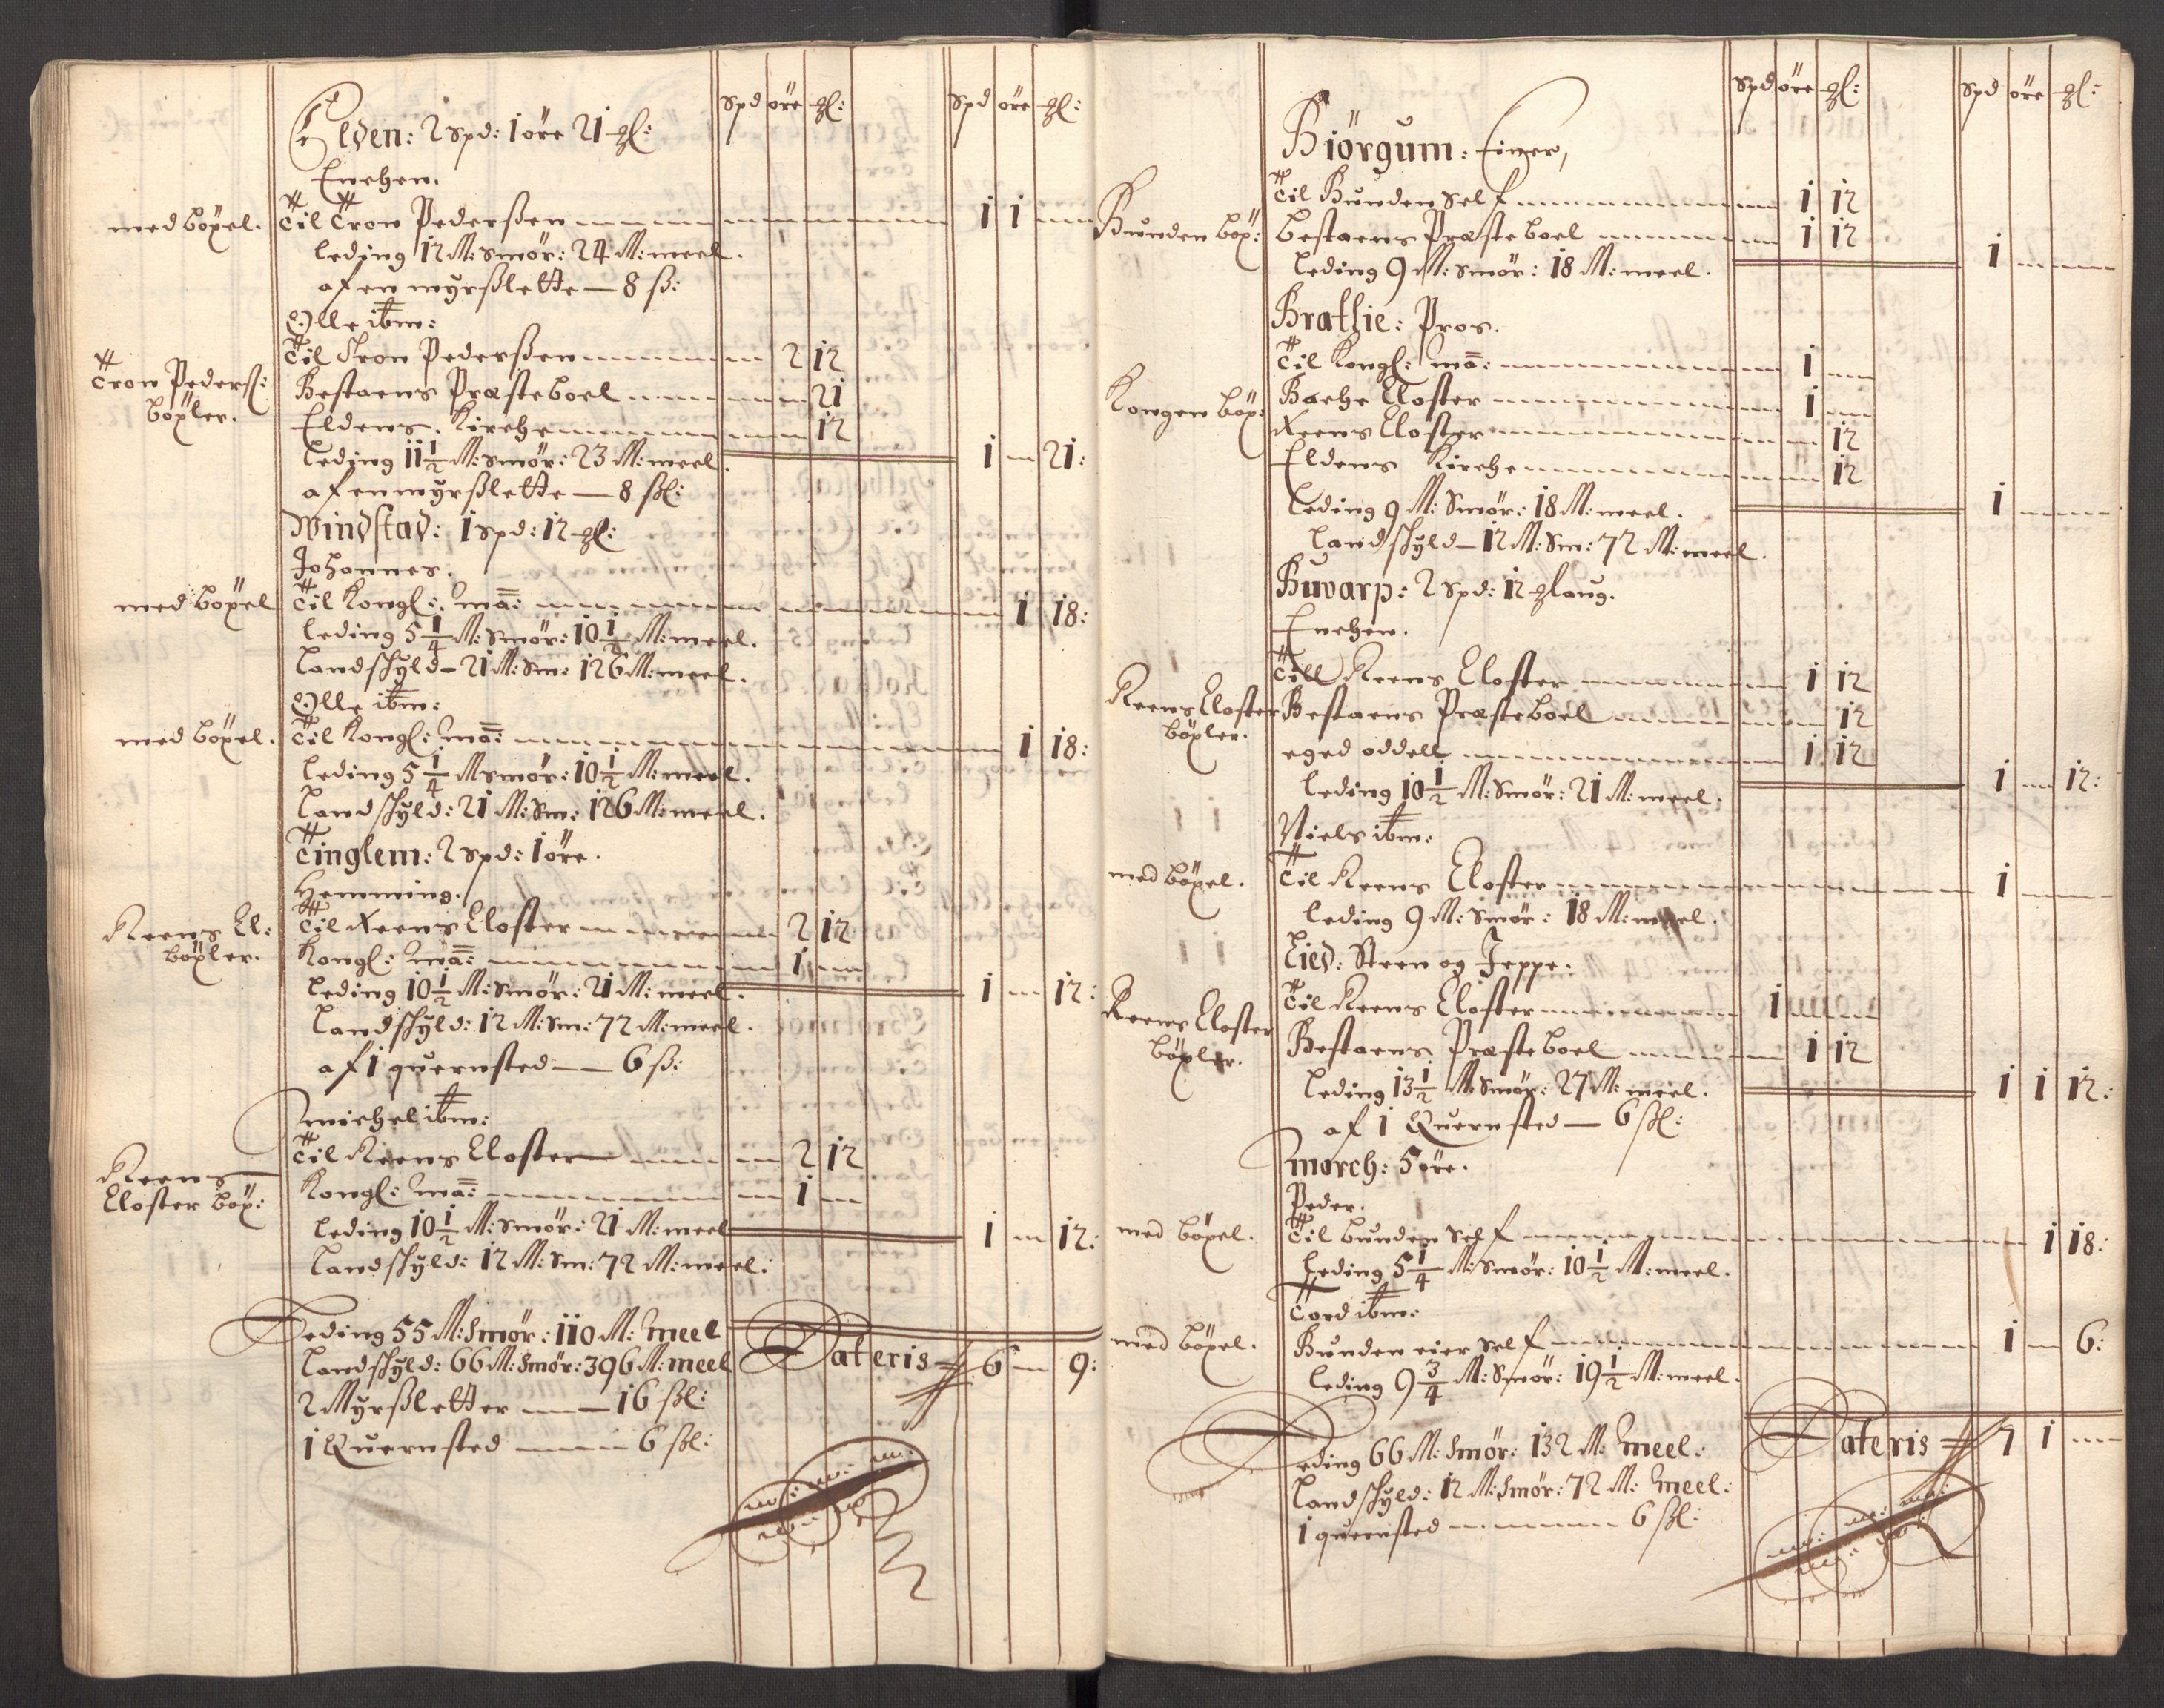 Spd öre gl: Spd öre gl:
Elden: 2 spd: 1 öre 21 gl:
Enchen.
med böxel. Til Tron Pederßen 1 1
leding 12 M: smör: 24 M: meel.
af en myrßlette — 8 ß:
Olle ibm:
Tron Pederß: böxler.
Til Tron Pederßen 2 12
Bestaens Præsteboel 21
Eldens Kirche 12
leding 11 1/2 M: smör: 23 M: meel. 1 21:
af en myrßlette — 8 ßl:
Windstad: 1 spd: 12 gl:
Johannes.
med böxel Til Kongl: Ma: 1 18:
leding 5 1/4 M: Smör: 10 1/2 M: meel.
Landschyld — 21 M: Sm: 126 M: meel.
Olle ibm:
med böxel. Til Kongl: Ma: 1 18:
leding 5 1/4 M smör: 10 1/2 M: meel.
Landschyld: 21 M: Sm: 126 M: meel.
Tinglem: 2 spd: 1 öre.
Hemming.
Reens Cl: böxler.
Til Reens Closter 2 12
Kongl: Ma: 1
leding 10 1/2 M: Smör: 21 M: meel. 1 12:
Landschyld: 12 M: Sm: 72 M: meel.
af 1 quernsted — 6 ß:
Michel ibm:
Til Reens Closter 2 12
Reens Closter böx:
Kongl: Ma: 1
leding 10 1/2 M: Smör: 21 M: meel 1 12:
Landschyld: 12 M: Sm: 72 M: meel:
Leding 55 M: Smör: 110 M: Meel
Landschyld: 66 M: Smör: 396 M: meel Lateris 6 9:
2 Myrßletter — 16 ßl:
1 Quernsted — 6 ßl:
Spd öre gl: Spd öre gl:
Biörgum: Einer,
Til Bunden Self 1 12
Bunden böx: Bestaens Præsteboel 1 12
leding 9 M: Smör: 18 M: meel. 1
Brathlie: Pros.
Til Kongl: Ma: 1
Kongen böx: Bache Closter 1
Reens Closter 12
Eldens Kirche 12
leding 9 M: Smör: 18 M: meel. 1
Landschyld — 12 M: Sm: 72 M: meel.
Buvarp: 2 spd: 12 gl aug.
Enchen.
Till Reens Closter 1 12
Reens Closter böxler.
Bestaens Præsteboel 12
eged oddell 1 12
leding 10 1/2 M: Smör: 21 M: meel: 1 12:
Niels ibm:
med böxel. Til Reens Closter 1
leding 9 M: Smör: 18 M: meel.
Lied: Steen og Jeppe:
Reens Closter böxler.
Til Reens Closter 1
Bestaens Præsteboel 1 12
leding 13 1/2 M: Smör: 27 M: meel. 1 1 12:
af 1 Quernsted — 6 ßl:
Morch: 5 öre.
Peder.
med böxel. Til bunden self 1 18:
leding 5 1/4 M: Smör: 10 1/2 M: meel.
Tord ibm:
med böxel. Bunden eier self 1 6:
leding 9 3/4 M: Smör: 19 1/2 M: meel.
Leding 66 M: Smör: 132 M: Meel: Lateris 7 1
Landschyld: 12 M: Smör: 72 M: Meel:
1 quernsted 6 ßl: